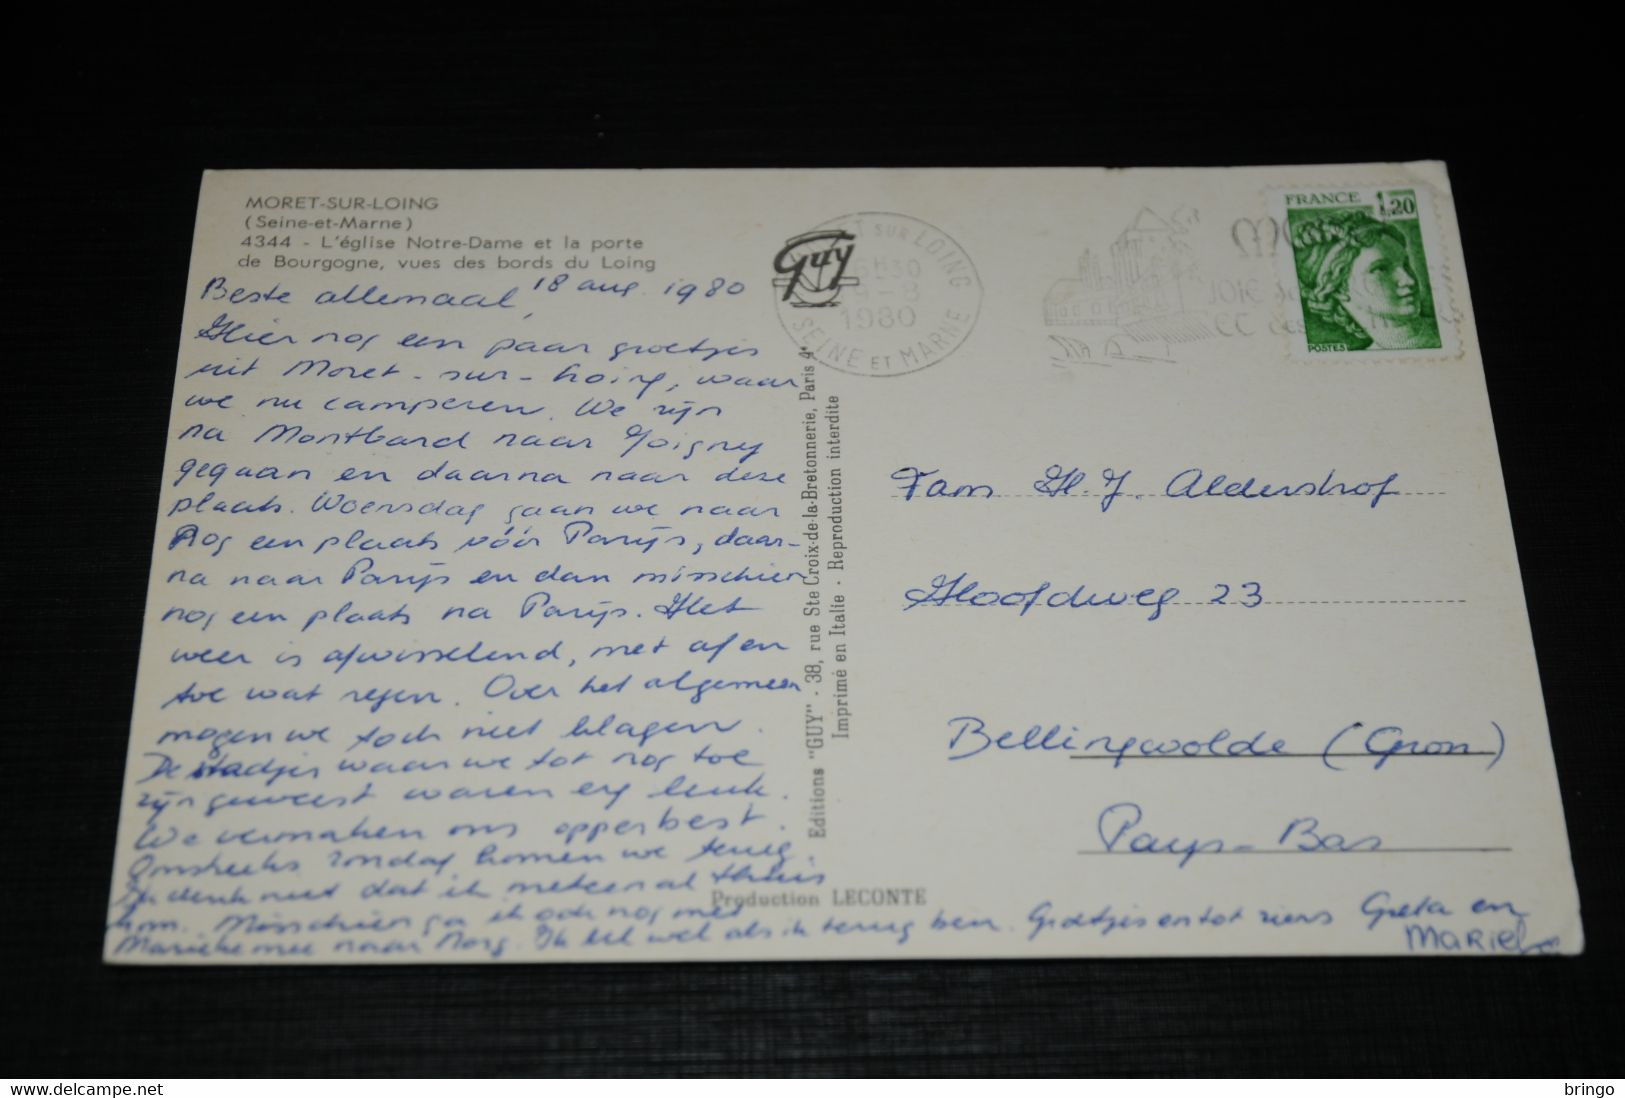 MORET-SUR-LOING
(Seine-et-Marne)
4344 - L'église Notre-Dame et la porte
de Bourgogne, vues des bords du Loing
Beste allemaal, 18 aug. 1980
Hier nog een paar groetjes
uit Moret-sur-Loing, waar
we nu camperen. We zijn
na Montbard naar Joigny
gegaan en daarna naar deze
plaats. Woensdag gaan we naar
nog een plaats vóór Parijs, daar-
na naar Parijs en dan misschien
nog een plaats na Parijs. Het
weer is afwisselend, met af en
toe wat regen. Over het algemeen
mogen we toch niet klagen.
De stadjes waar we tot nog toe
zijn geweest waren erg leuk.
We vermaken ons opperbest.
Omstreeks zondag komen we terug.
Ik denk niet dat ik meteen al thuis
kom. Misschien ga ik ook nog met
Marieke mee naar Norg. Ik bel wel als ik terug ben. Groetjes en tot ziens Greta en
MARIEKE
Guy
MORET SUR LOING
16H30
1980
SEINE ET MARNE
FRANCE 1,20
POSTES
Editions "GUY" - 38, rue Ste Croix-de-la-Bretonnerie, Paris 4e
Imprimé en Italie - Reproduction interdite
Production LECONTE
Fam H.J. Aldershof
Hoofdweg 23
Bellingwolde (Gron)
Pays-Bas
bringo